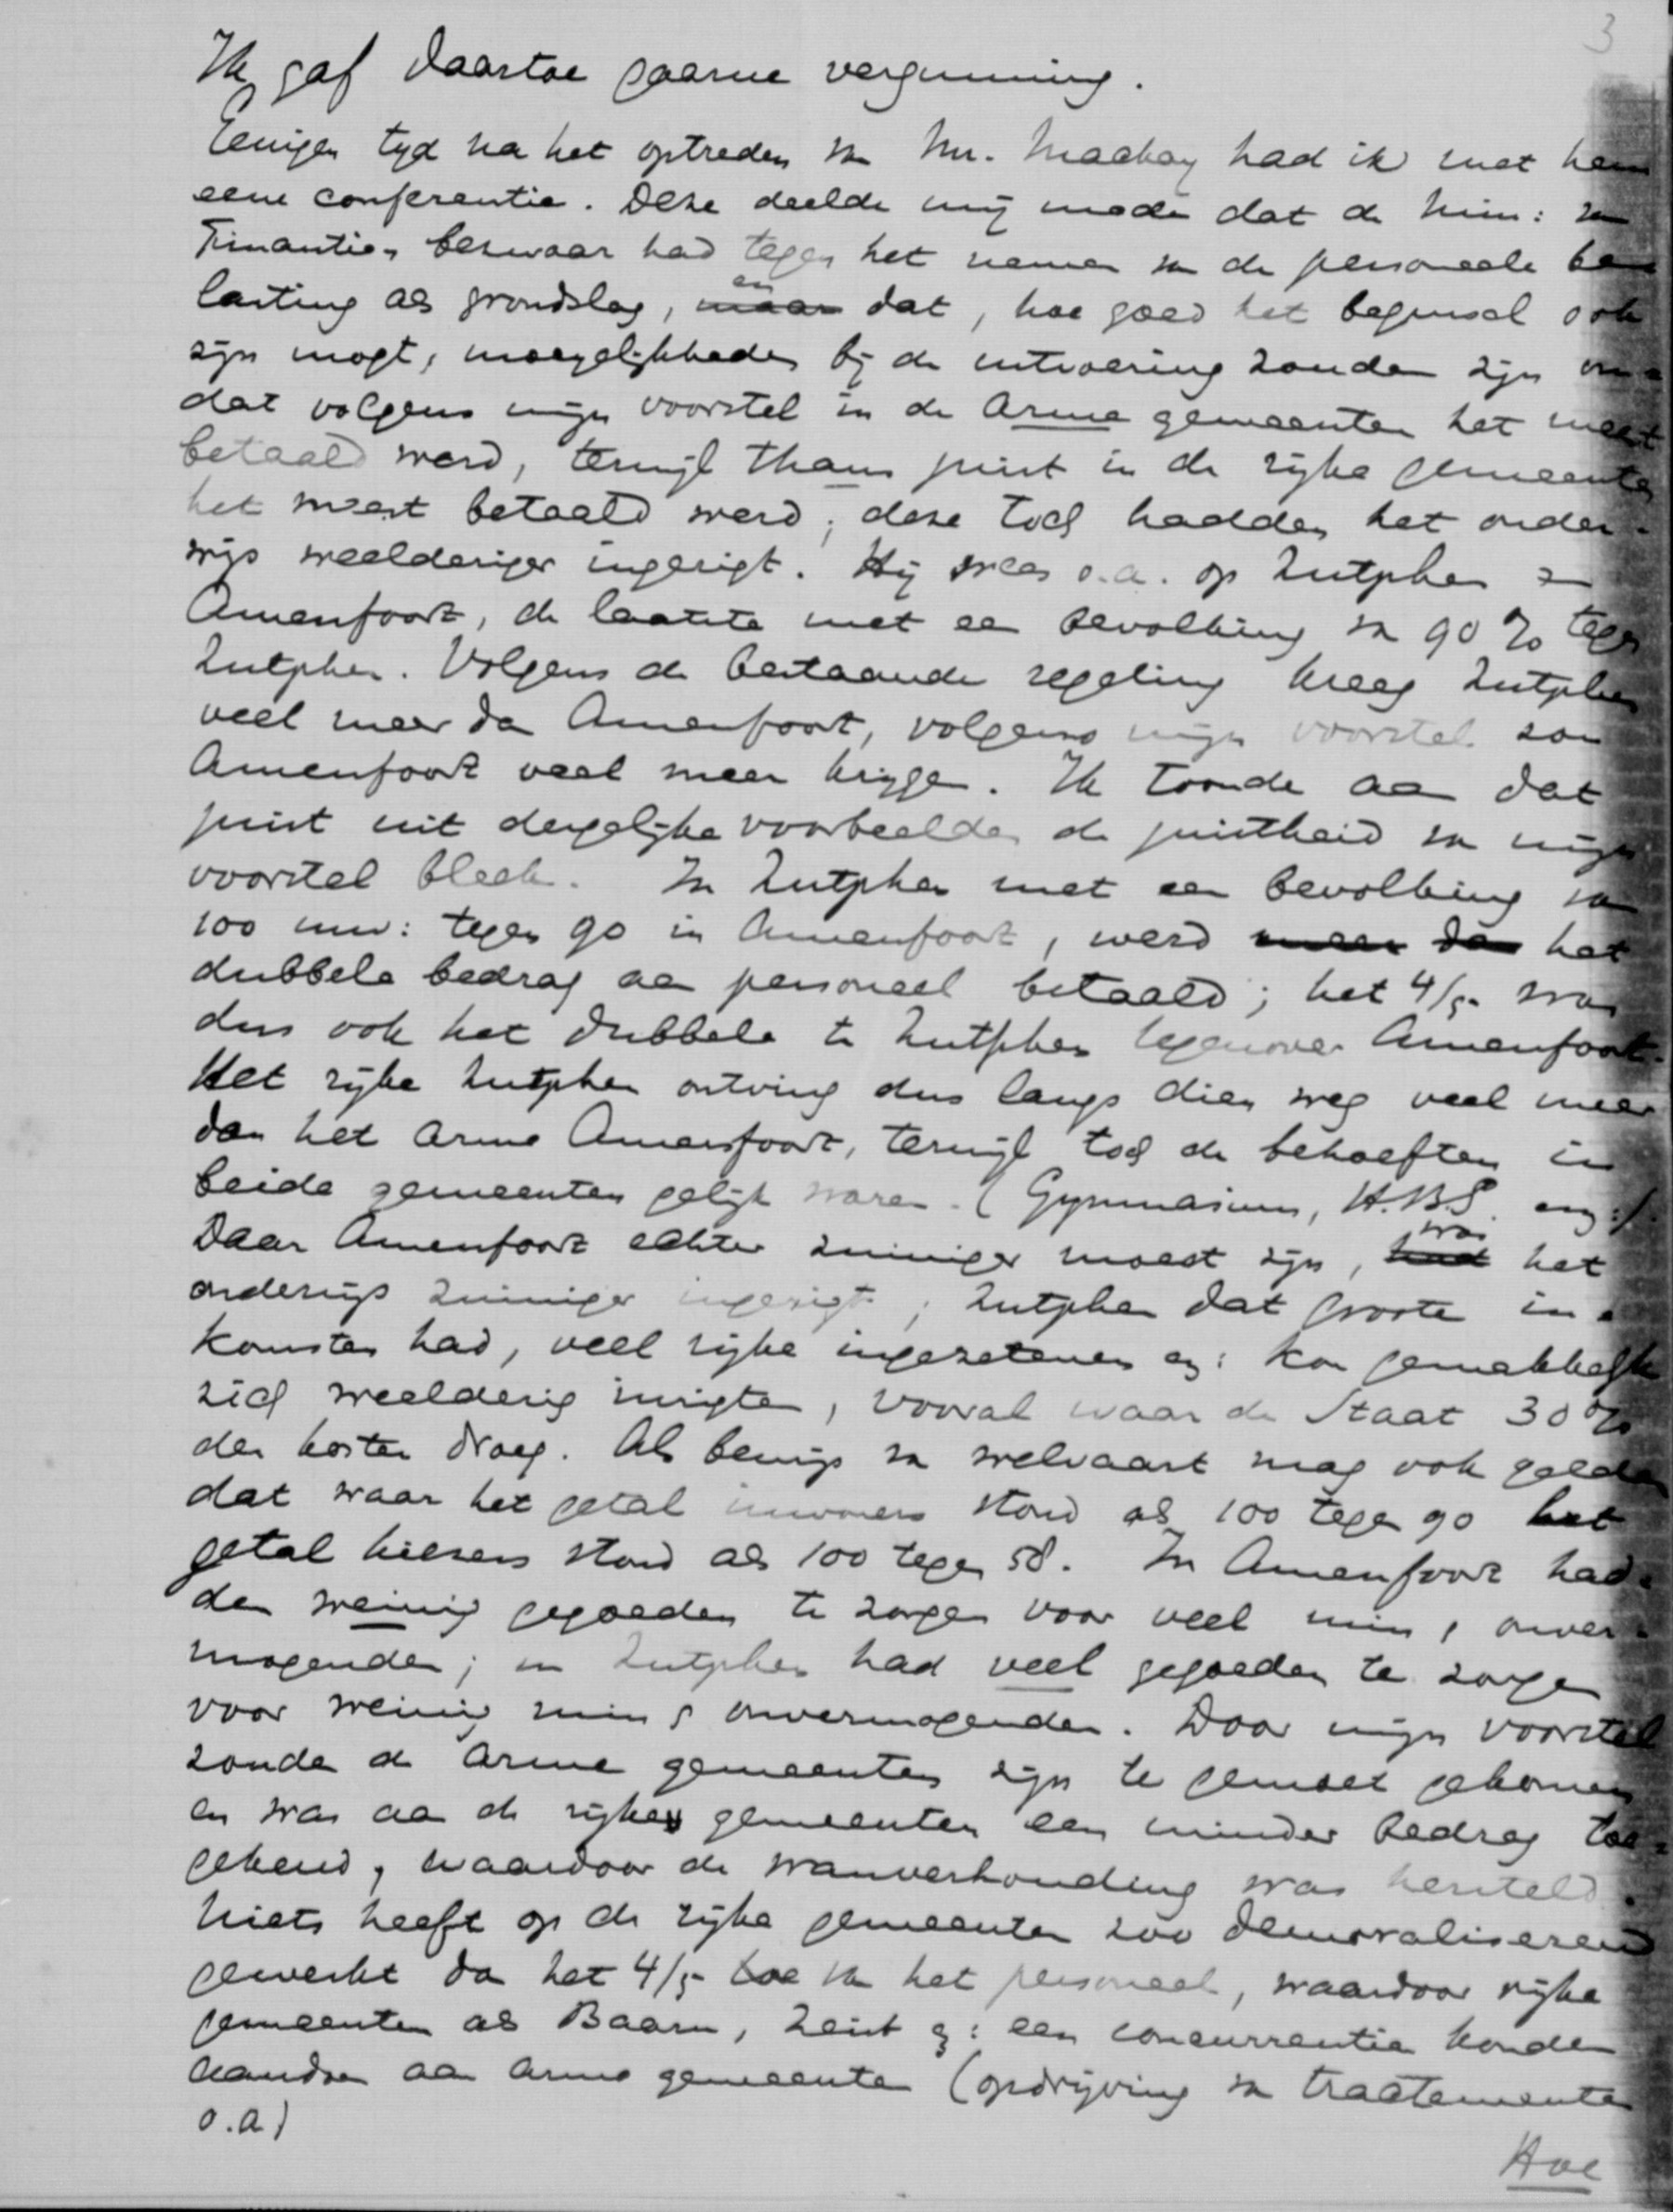 3
Ik gaf daartoe gaarne vergunning.
Eenigen tyd na het optreden van Mr. Mackay had ik met hem
eene conferentie. Deze deelde mij mede dat de Min: van
Finantien bezwaar had tegen het nemen van de personeele be-
lasting als grondslag, maar en dat, hoe goed het beginsel ook
zijn mogt, moeyelijkheden bij de uitvoering zouden zijn om-
dat volgens mijn voorstel in de arme gemeenten het meest
betaald werd, terwijl thans juist in de rijke gemeenten
het meest betaald werd; deze toch hadden het onder-
wijs weelderiger ingerigt. Hij wees o.a. op Zutphen en
Amersfoort, de laatste met een bevolking van 90 % tegen
Zutphen. Volgens de bestaande regeling kreeg Zutphen
veel meer dan Amersfoort, volgens mijn voorstel zou
Amersfoort veel meer krijgen. Ik toonde aan dat
juist uit dergelijke voorbeelden de juistheid van mijn
voorstel bleek. In Zutphen met een bevolking van
100 inw: tegen 90 in Amersfoort, werd meer dan het
dubbele bedrag aan personeel betaald; het 4/5 was
dus ook het dubbele te Zutphen tegenover Amersfoort.
Het rijke Zutphen ontving dus langs dien weg veel meer
dan het arme Amersfoort, terwijl toch de behoeften in
beide gemeenten gelijk waren. (Gymnasium, H.B.S. enz:)
Daar Amersfoort echter zuiniger moest zijn, had was het
onderwijs zuiniger ingerigt; Zutphen dat groote in-
komsten had, veel rijke ingezetenen enz: kon gemakkelijk
zich weelderig inrigten, vooral waar de Staat 30 %
der kosten droeg. Als bewijs van welvaart mag ook gelden
dat waar het getal inwoners stond als 100 tegen 90 het
getal kiezers stond als 100 tegen 58. In Amersfoort had-
den weinig gegoeden te zorgen voor veel min & onver-
mogenden; in Zutphen had veel gegoeden te zorgen
voor weinig min & onvermogenden. Door mijn voorstel
zouden de arme gemeenten zijn te gemoet gekomen
en was aan de rijke gemeenten een minder bedrag toe-
gekend, waardoor de wanverhouding was hersteld.
Niets heeft op de rijke gemeenten zoo demoraliserend
gewerkt dan het 4/5 van het personeel, waardoor rijke
gemeenten als Baarn, Zeist enz: een concurrentie konden
aandoen aan arme gemeenten (opdrijving van tractementen
o.a.)
Hoe